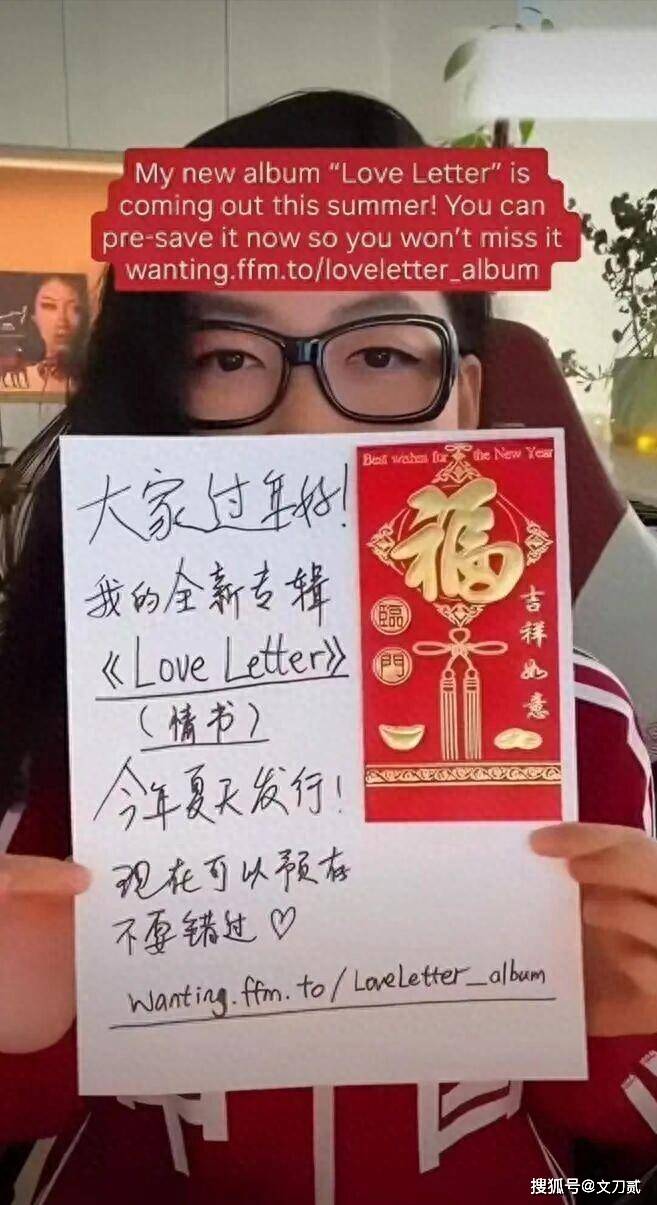 My new album “Love Letter” is
coming out this summer! You can
pre-save it now so you won’t miss it
wanting.ffm.to/loveletter_album
大家过年好!
我的全新专辑
《Love Letter》
(情书)
今年夏天发行!
现在可以预存
不要错过♡
wanting.ffm.to/LoveLetter_album
Best wishes for the New Year
福
臨
門
吉祥如意
中国
搜狐号@文刀贰